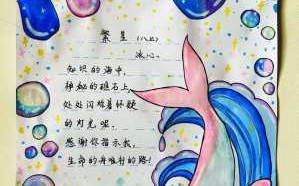 繁星（八五）
冰心
知识的海中，
神秘的礁石上，
处处闪烁着怀疑
的灯光呢。
感谢你指示我，
生命的舟难行的路！